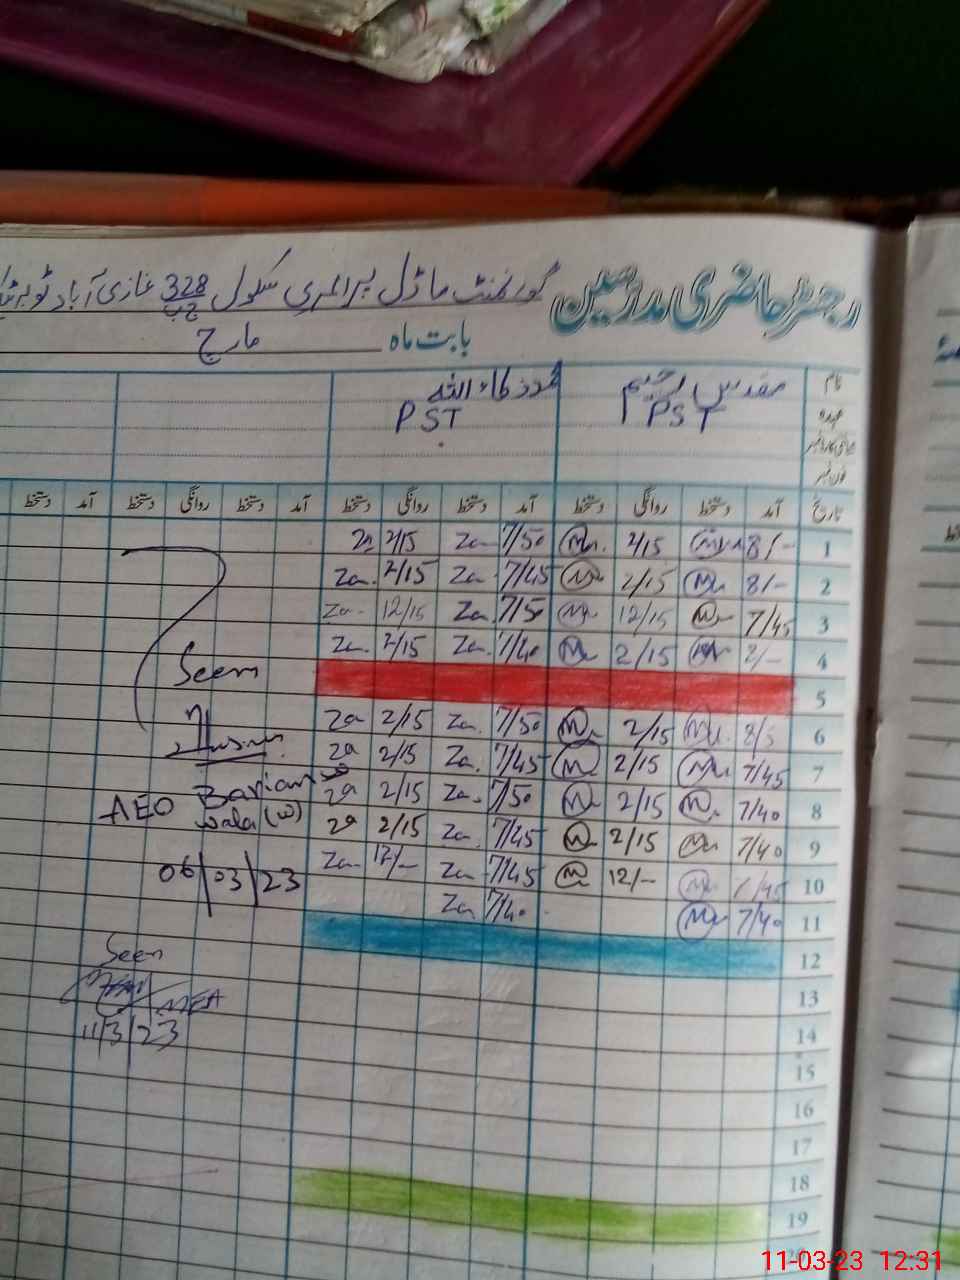 رجسٹر حاضری مدرسین گورنمنٹ ماڈل پرائمری سکول 328 ج ب غازی آباد ٹوبہ
بابت ماہ مارچ
نام مقدس محمد ذکاء اللہ
عہدہ PST PST
فون نمبر
تاریخ آمد دستخط روانگی دستخط آمد دستخط روانگی دستخط آمد دستخط روانگی دستخط آمد دستخط
1 8/- Mu 2/15 Mu. 7/50 Za 2/15 Za
2 8/- Mu 2/15 Mu 7/45 Za 2/15 Za.
3 7/45 Mu 12/15 Mu 7/50 Za 12/15 Za
4 8/- Mu 2/15 Mu 7/40 Za. 2/15 Za.
5
Seen
6 Mu. 2/15 Mu 7/50 Za. 2/15 Za
7 7/45 Mu 2/15 Mu 7/45 Za. 2/15 Za
8 7/40 Mu. 2/15 Mu 7/50 Za. 2/15 Za
AEO wala (w)
9 7/40 Mu 2/15 Mu 7/45 Za. 2/15 Za
10 7/45 Mu 12/- Mu 7/45 Za 12/- Za
06/03/23
11 7/40 Mu 7/40 Za
12
Seen
MEA
11/3/23
13
14
15
16
17
18
19
20
11-03-23 12:31